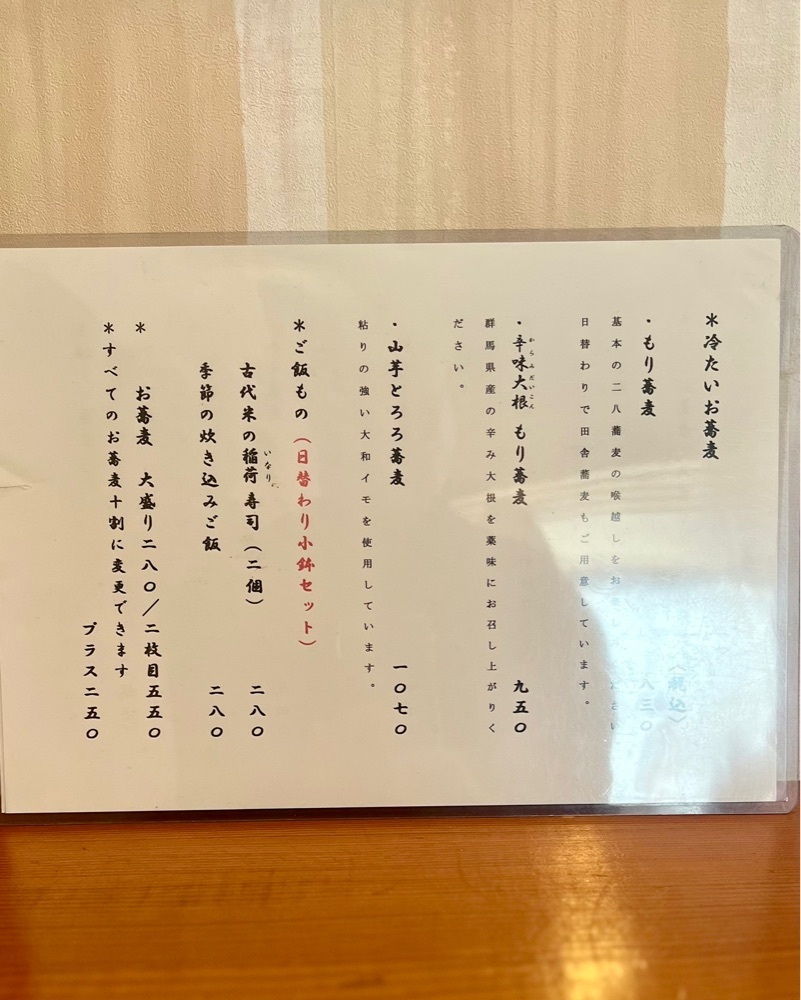 ＊冷たいお蕎麦
（税込）
・もり蕎麦 八三〇
基本の二八蕎麦の喉越しをお
日替わりで田舎蕎麦もご用意しています。
・辛味大根 もり蕎麦 九五〇
からみだいこん
群馬県産の辛み大根を薬味にお召し上がりく
ださい。
・山芋とろろ蕎麦 一〇七〇
粘りの強い大和イモを使用しています。
＊ご飯もの（日替わり小鉢セット）
いなり
古代米の稲荷寿司（二個） 二八〇
季節の炊き込みご飯 二八〇
＊ お蕎麦 大盛り二八〇／二枚目五五〇
＊すべてのお蕎麦十割に変更できます
プラス二五〇